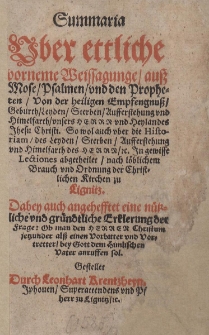 Summaria
Uber ettliche
vorneme Weissagunge / auß
Mose / Psalmen / vnd den Prophe-
ten / Von der heiligen Empfengnuß /
Geburt / Leyden / Sterben / Aufferstehung vnd
Himelfarth / vnsers HERRN vnd Heylandes
Jhesu Christi. So wol auch vber die Histo-
rien / des Leyden / Sterben / Aufferstehung
vnd Himelfarth des HERRN / ꝛc. In gewisse
Lectiones abgetheilet / nach löblichem
Brauch vnd Ordnung der Christ-
lichen Kirchen zu
Lignitz.
Dabey auch angehefftet eine nütz-
liche vnd gründtliche Erklerung der
Frage: Ob man den HERREN Christum
jetzunder alß einen Vorbitter vnd Vor-
tretter / bey Gott dem himlischen
Vater anruffen sol.
Gestellet
Durch Leonhart Krentzheym,
Iphouen / Superattendens vnd Pf
herr zu Lignitz / ꝛc.